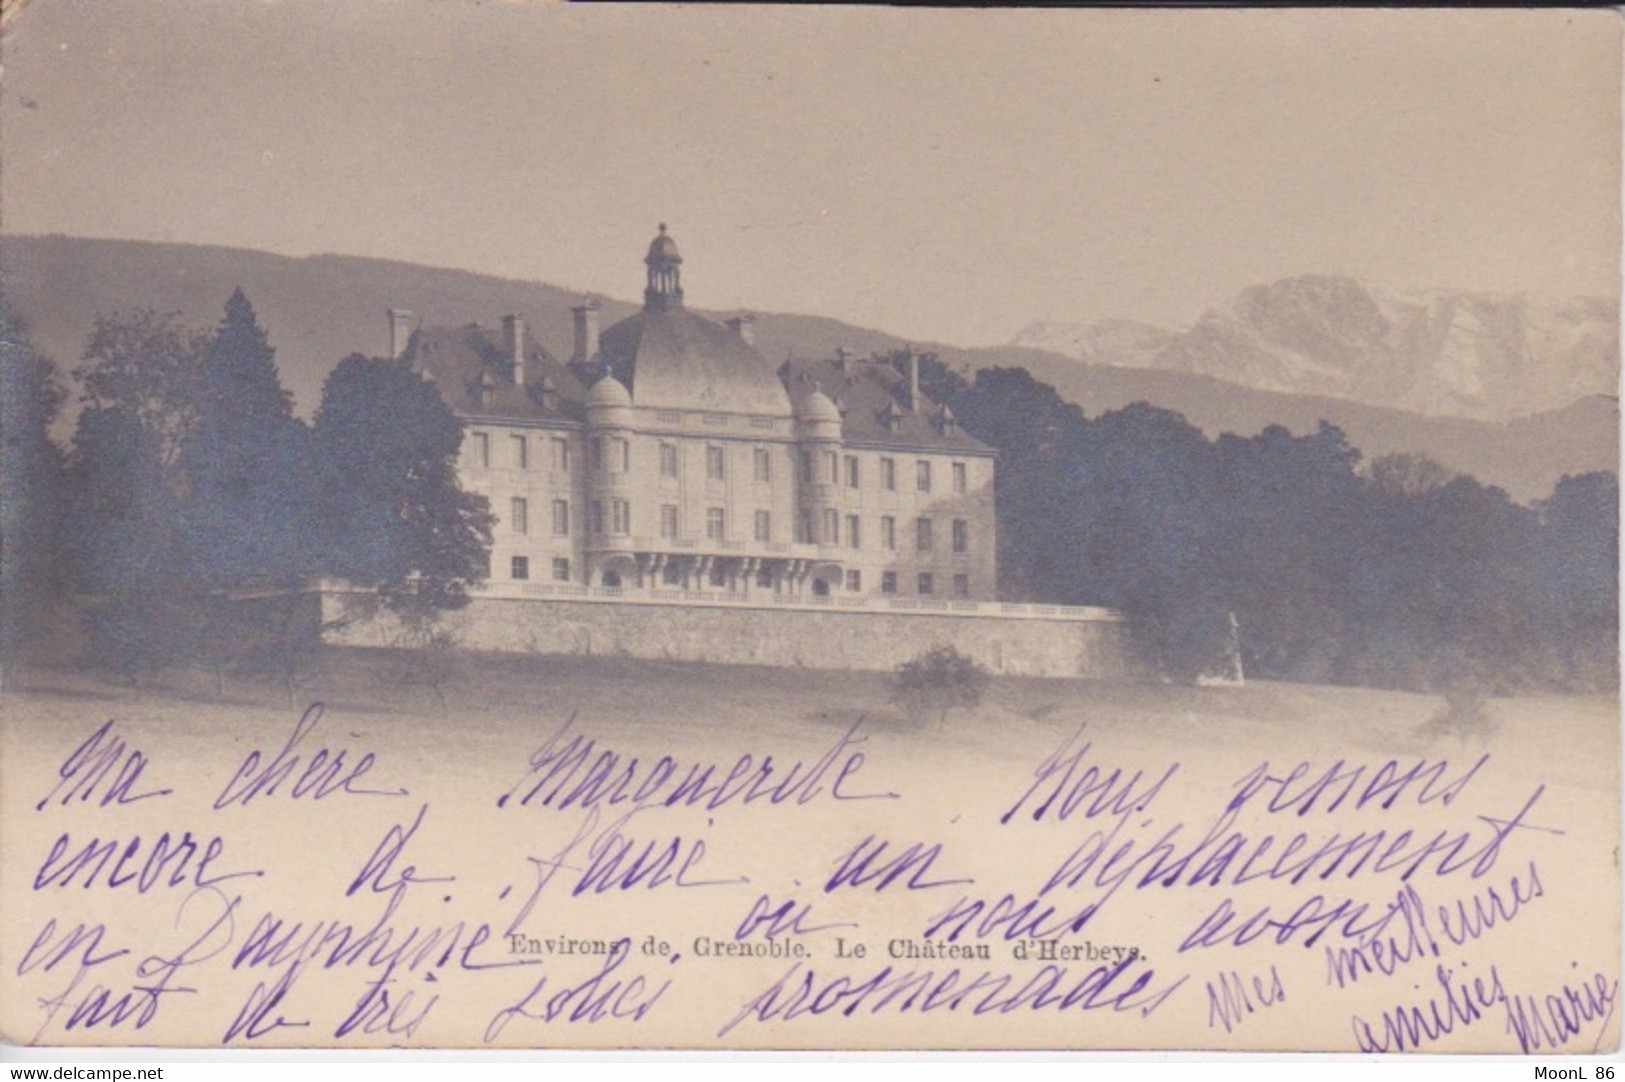 Ma chère Marguerite Nous venons
encore de faire un déplacement
en Dauphiné où nous avons
Environs de Grenoble. Le Château d'Herbeys.
fait de très jolies promenades
Mes meilleures
amitiés
Marie
www.delcampe.net
MoonL 86